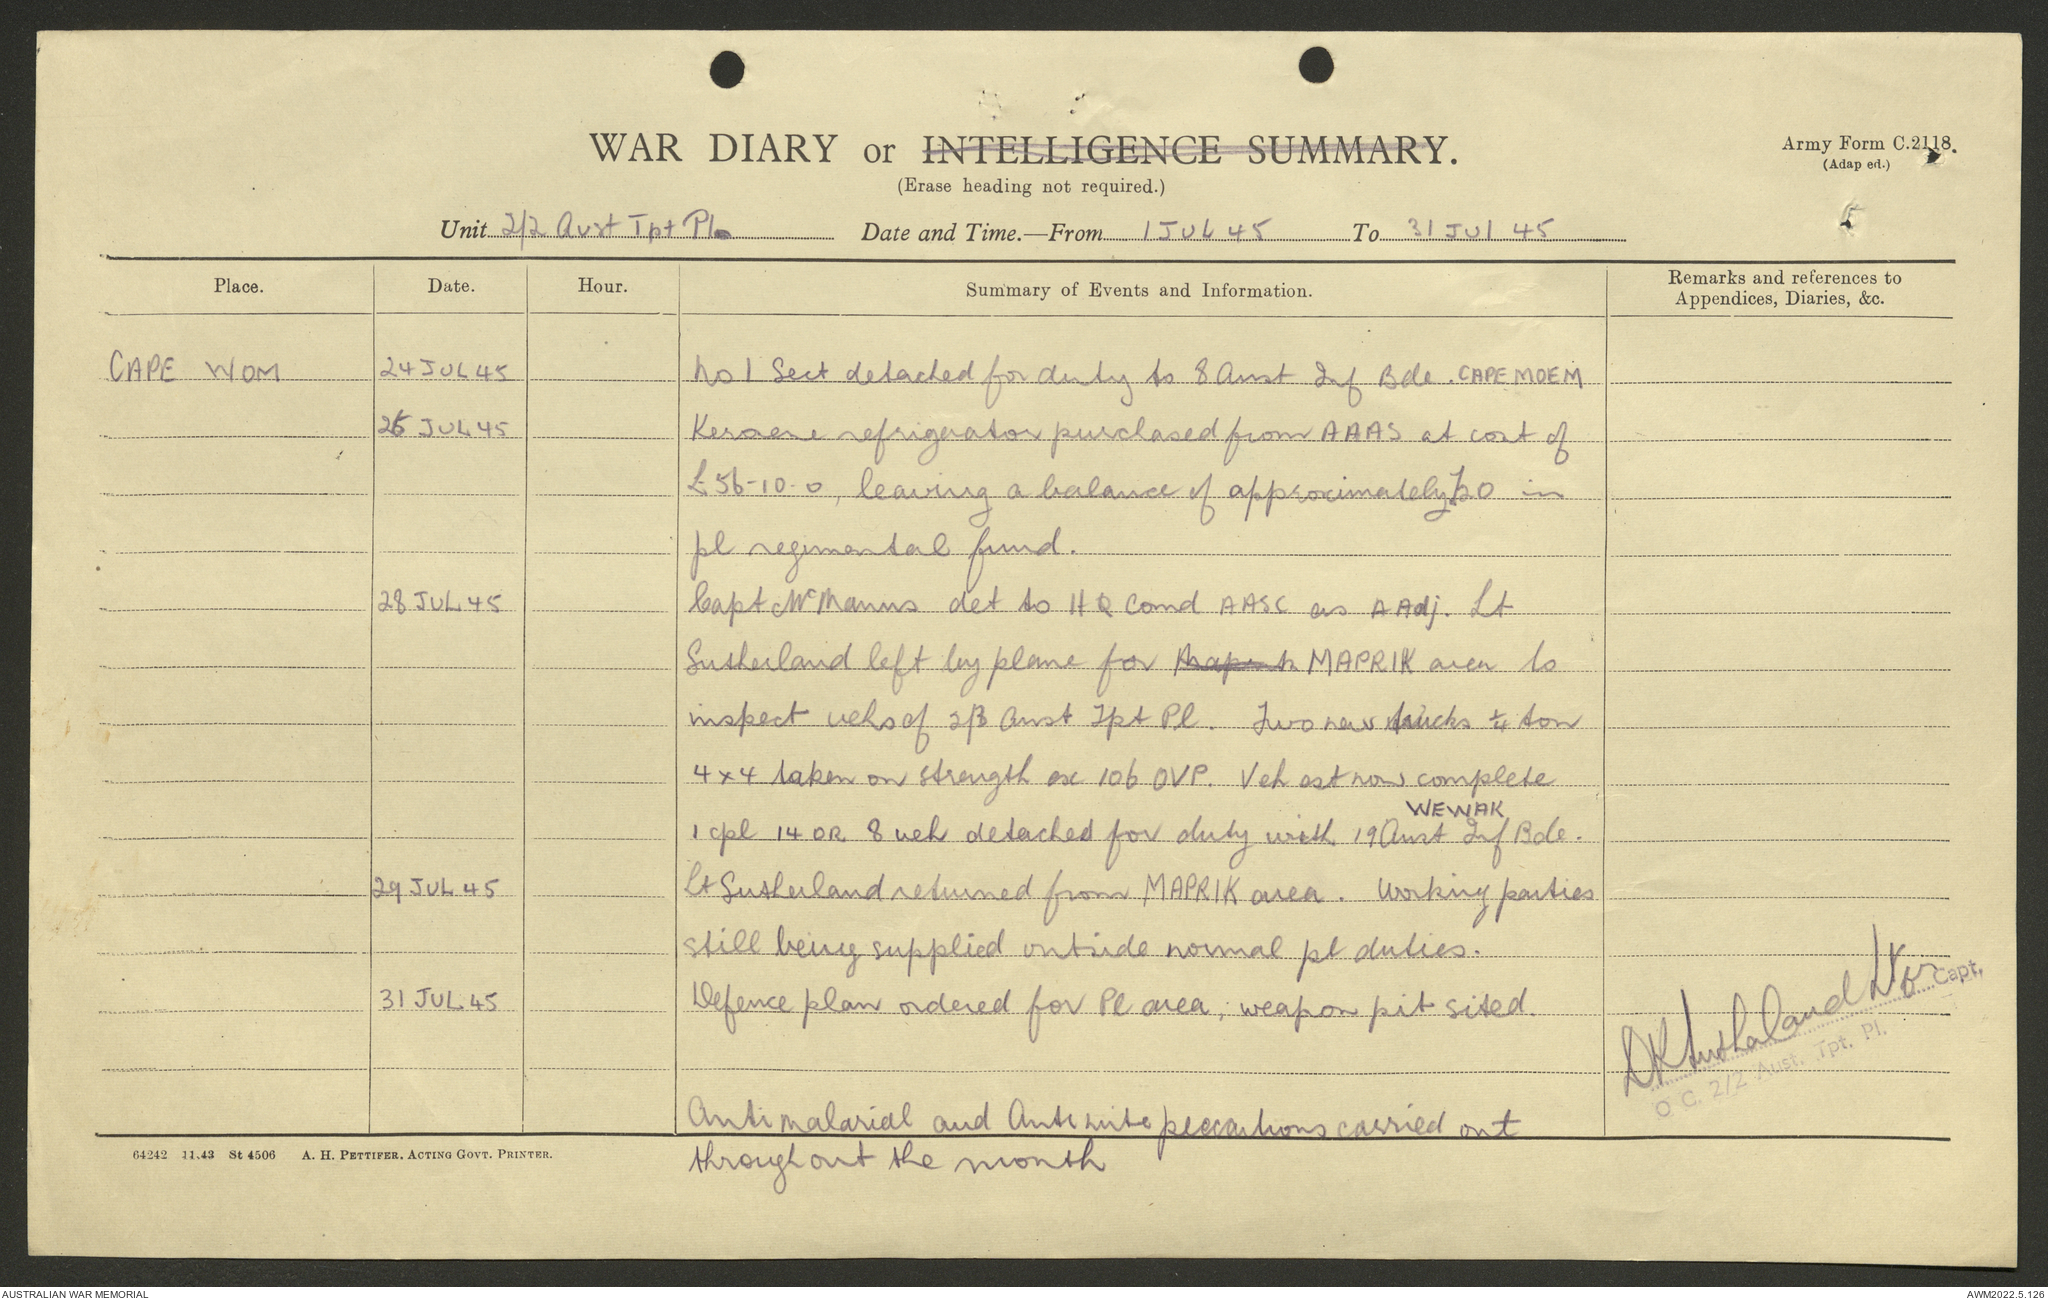 WAR DIARY or INTELLIGENCE SUMMARY.
(Erase heading not required.)
Army Form C.2118.
(Adap ed.)
5
Unit 2/2 Aust Tpt Pl. Date and Time.—From 1 JUL 45 To 31 JUL 45
Place. Date. Hour. Summary of Events and Information. Remarks and references to Appendices, Diaries, &c.
CAPE WOM 24 JUL 45 No 1 Sect detached for duty to 8 Aust Inf Bde. CAPE MOEM
25 JUL 45 Kerosene refrigerator purchased from AAAS at cost of
£56-10-0, leaving a balance of approximately £20 in
pl regimental fund.
28 JUL 45 Capt McManus det to HQ Comd AASC as A Adj. Lt
Sutherland left by plane for MAPRIK area to
inspect vehs of 2/3 Aust Tpt Pl. Two new trucks ¼ ton
4x4 taken on strength ex 106 OVP. Veh est now complete
WEWAK
1 cpl 14 OR 8 veh detached for duty with 19 Aust Inf Bde.
29 JUL 45 Lt Sutherland returned from MAPRIK area. Working parties
still being supplied outside normal pl duties.
31 JUL 45 Defence plan ordered for Pl area, weapon pit sited.
DK Sutherland Lt for Capt.
O C. 2/2 Aust. Tpt. Pl.
Anti malarial and Anti mite precautions carried out
throughout the month
64242 11.43 St 4506 A. H. PETTIFER, ACTING GOVT. PRINTER.
AUSTRALIAN WAR MEMORIAL AWM2022.5.126